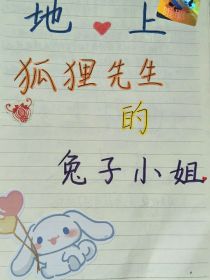 地上
狐狸先生
的
兔子小姐